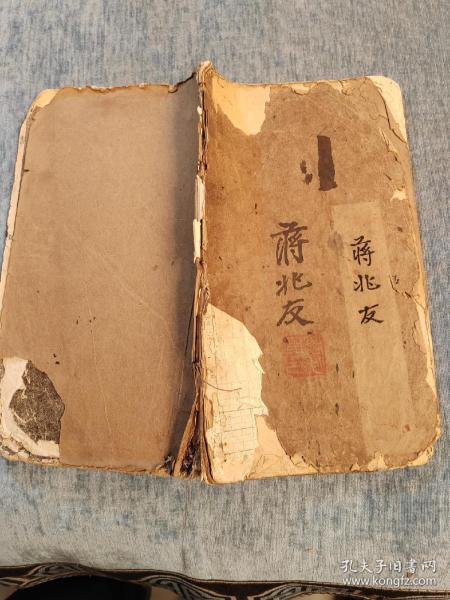 蔣兆友
蔣兆友
孔夫子旧书网
www.kongfz.com